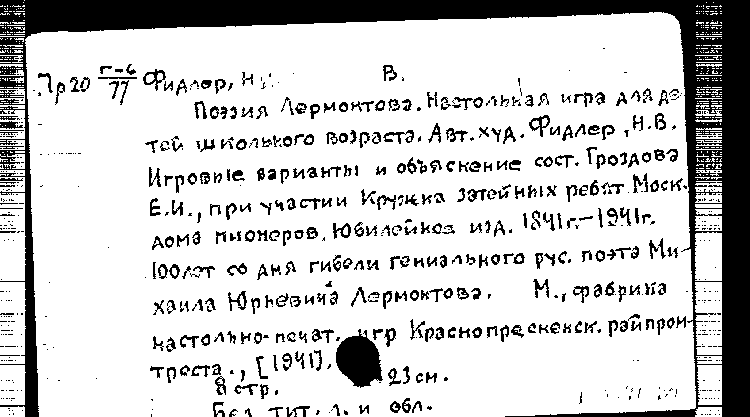 Пр20 Г-6/77 Фидлер, Н. В.
Поэзия Лермонтова. Настольная игра для де-
тей школьного возраста. Авт. худ. Фидлер, Н.В.
Игровые варианты и объяснение сост. Гроздова
Е.И., при участии Кружка затейных ребят Моск.
дома пионеров. Юбилейное изд. 1841г.–1941г.
100лет со дня гибели гениального рус. поэта Ми-
хаила Юрьевича Лермонтова. М., фабрика
настольно-печат. игр Краснопресненск. райпром-
треста., [1941].
8 стр. 23 см.
Без тит. л. и обл.